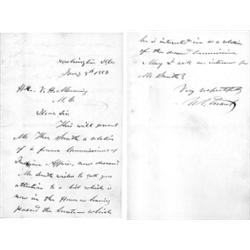 Washington D.C.
Jany 9th 1883
Hon. V. H. Manning
M.C.
Dear Sir
This will present
Mr. Thos Smith a relative
of a former Commissioner of
Indian Affairs, now deceased
Mr. Smith wishes to call your
attention to a bill which is
now in the House having
passed the Senate which
he is interested in as a relative
of the Commissioner
May I ask an interview for
Mr Smith?
Very respectfully